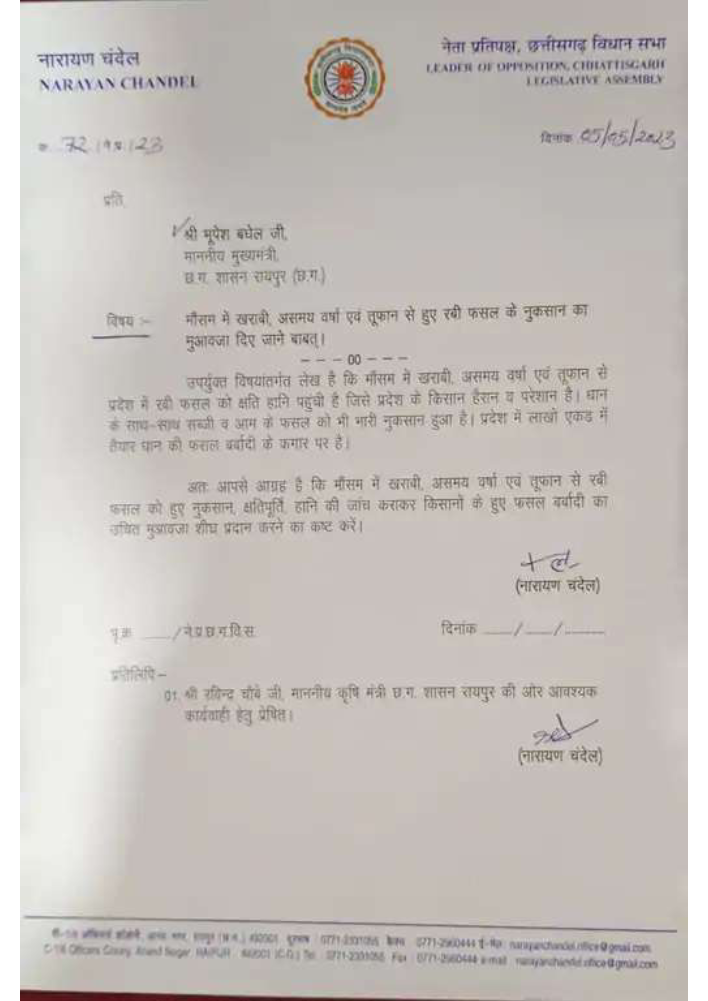 नारायण चंदेल
NARAYAN CHANDEL
नेता प्रतिपक्ष, छत्तीसगढ़ विधान सभा
LEADER OF OPPOSITION, CHHATTISGARH
LEGISLATIVE ASSEMBLY
दिनांक 05/05/2023
प्रति,
श्री भूपेश बघेल जी,
माननीय मुख्यमंत्री,
छ.ग. शासन रायपुर (छ.ग.)
विषय :- मौसम में खराबी, असमय वर्षा एवं तूफान से हुए रबी फसल के नुकसान का
मुआवजा दिए जाने बाबत्।
- - - 00 - - -
उपर्युक्त विषयांतर्गत लेख है कि मौसम में खराबी, असमय वर्षा एवं तूफान से
प्रदेश में रबी फसल को क्षति हानि पहुंची है जिसे प्रदेश के किसान हैरान व परेशान है। धान
के साथ-साथ सब्जी व आम के फसल को भी भारी नुकसान हुआ है। प्रदेश में लाखो एकड़ में
तैयार धान की फसल बर्बादी के कगार पर है।
अतः आपसे आग्रह है कि मौसम में खराबी, असमय वर्षा एवं तूफान से रबी
फसल को हुए नुकसान, क्षतिपूर्ति, हानि की जांच कराकर किसानों के हुए फसल बर्बादी का
उचित मुआवजा शीघ्र प्रदान करने का कष्ट करें।
(नारायण चंदेल)
पृ.क्र. ____/ने.प्र.छ.ग.वि.स. दिनांक ____/____/______
प्रतिलिपि –
01. श्री रविन्द्र चौबे जी, माननीय कृषि मंत्री छ.ग. शासन रायपुर की ओर आवश्यक
कार्यवाही हेतु प्रेषित।
(नारायण चंदेल)
0771-2331055 0771-2960444 narayanchandel.office@gmail.com
Anand Nagar, RAIPUR - 492001 (C.G.) Tel : 0771-2331055 Fax : 0771-2960444 e-mail : narayanchandel.office@gmail.com